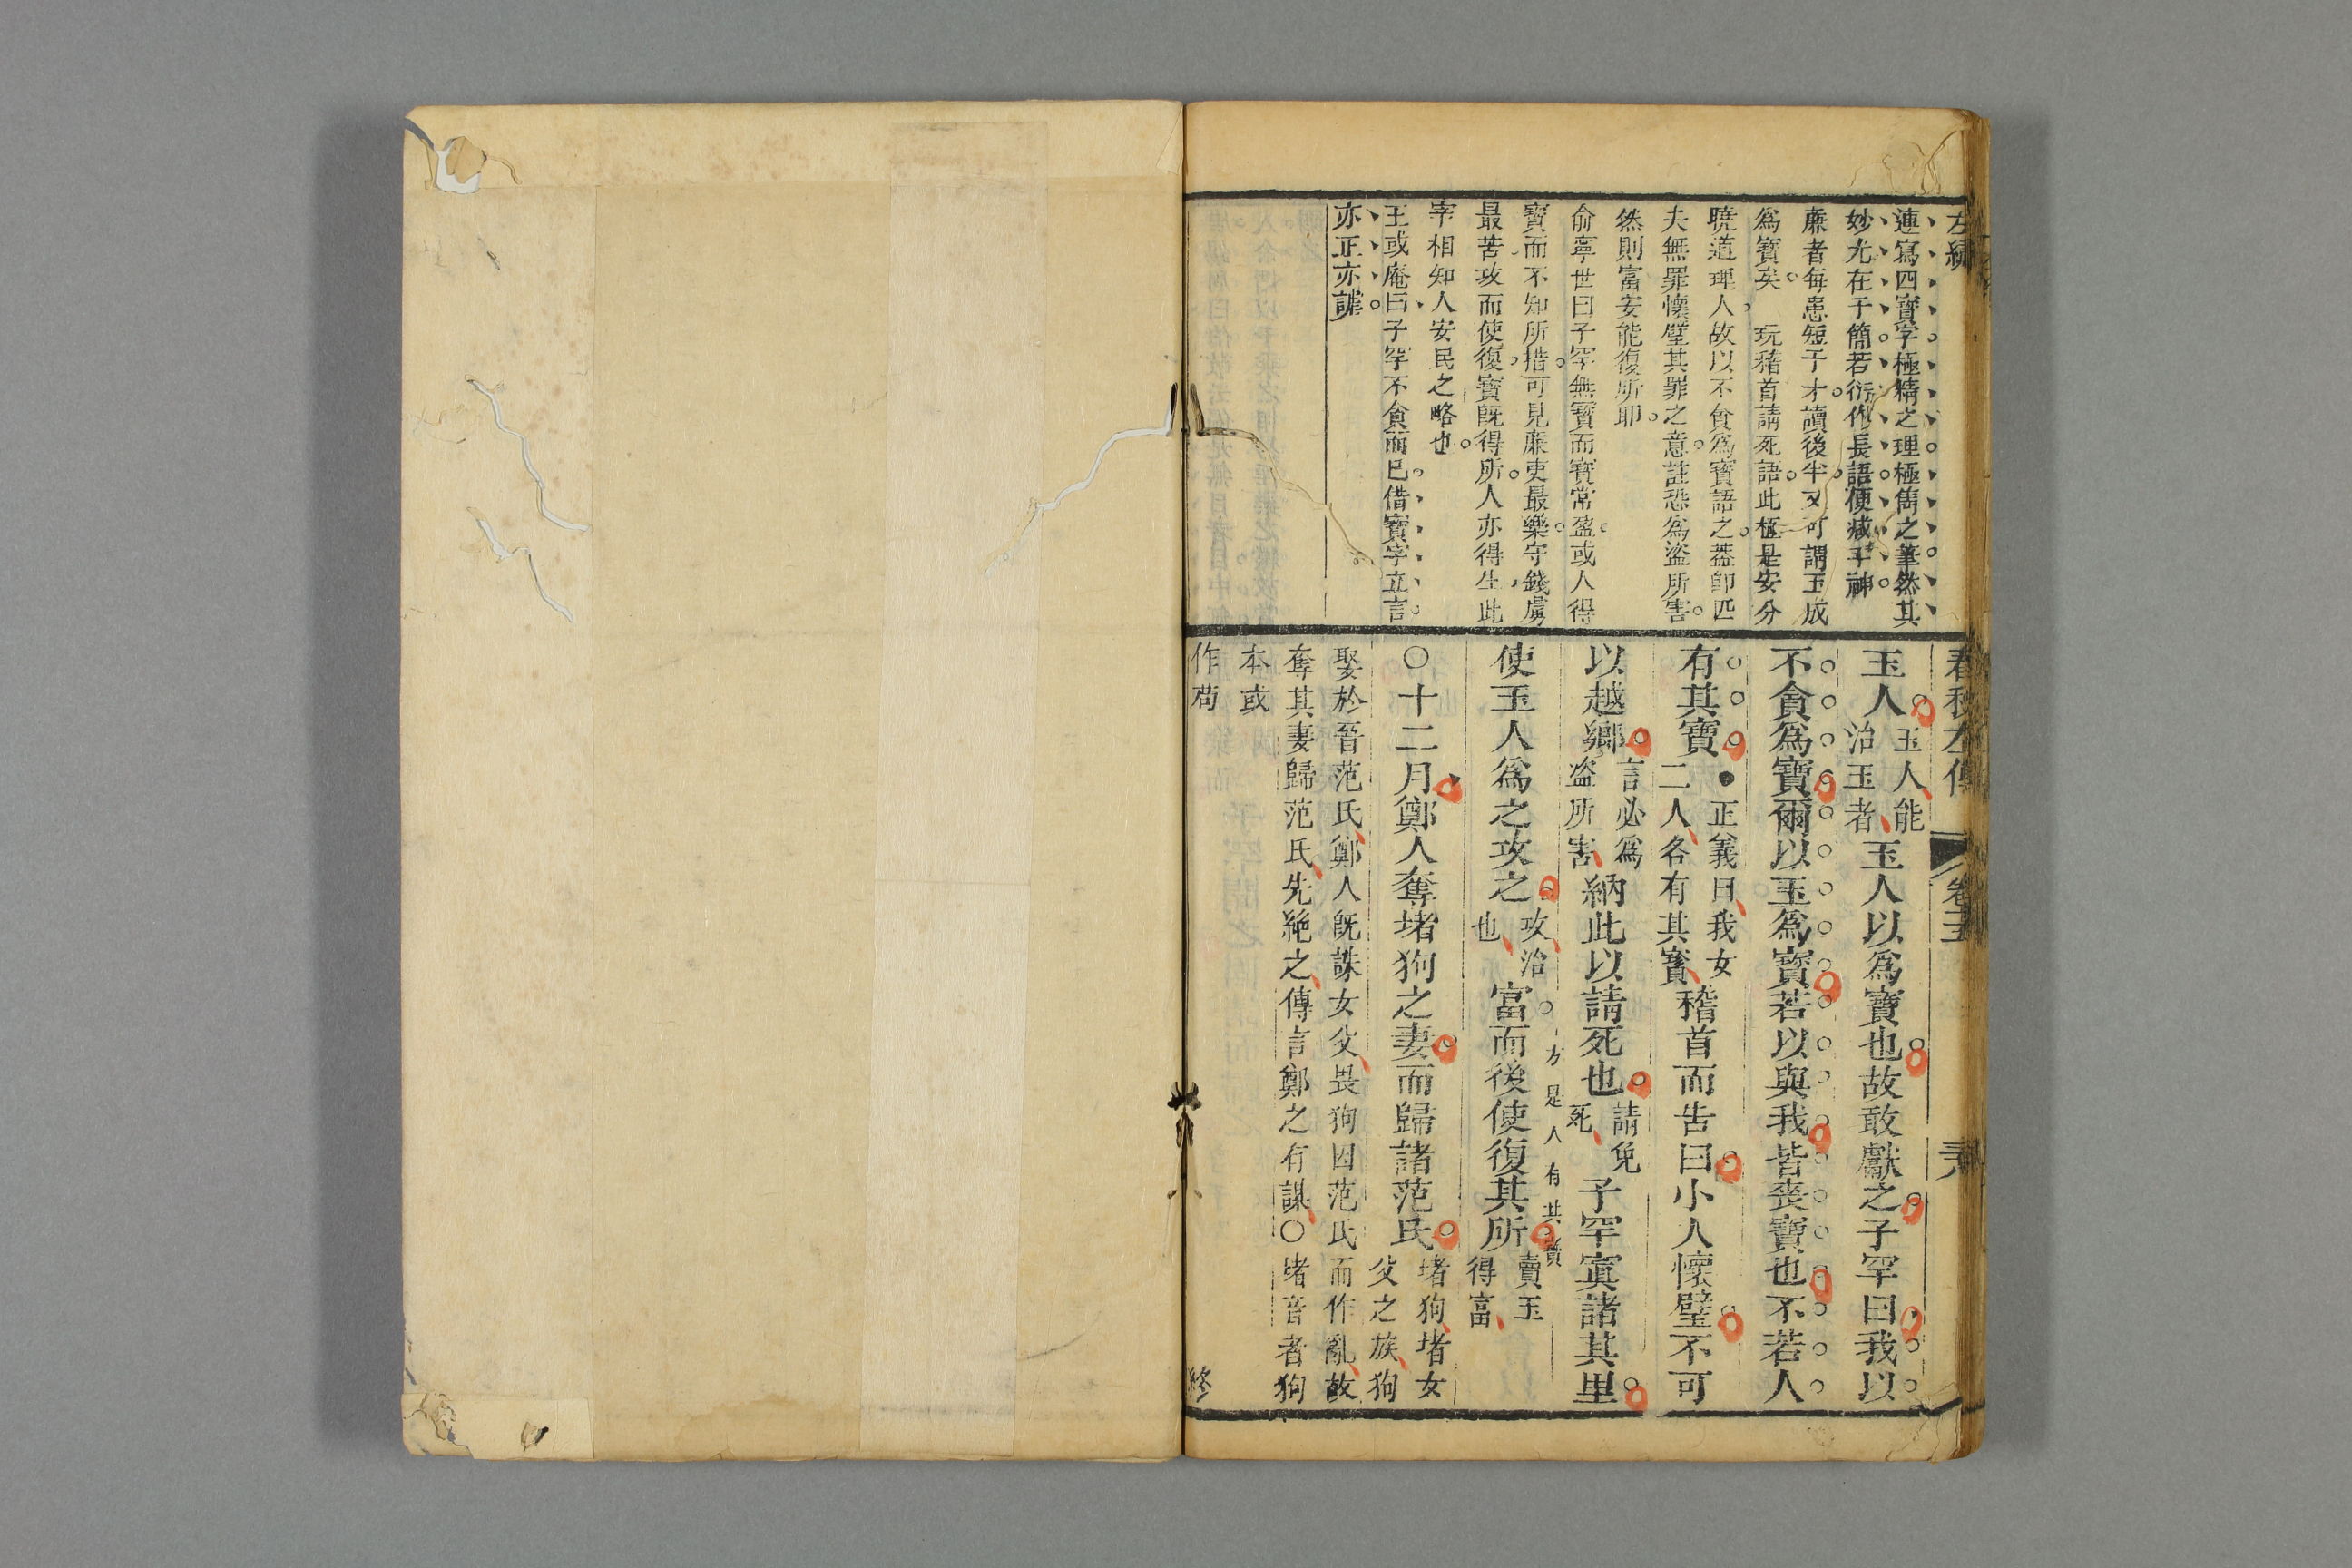 左繡
連寫四寶字極精之理極雋之筆然其
妙尤在于簡若衍作長語便減手神
廉者每患短于才讀後半又可謂玉成
為寶矣 玩稽首請死語此極是安分
曉道理人故以不貪爲寶語之葢卽匹
夫無罪懷璧其罪之意註恐爲盜所害
然則富安能復所耶
俞寧世曰子罕無寶而寶常盈或人得
寶而不知所措可見廉吏最樂守錢虜
最苦攻而使復寶旣得所人亦得生此
宰相知人安民之略也
王或庵曰子罕不貪而已借寶字立言
亦正亦謔
春秋左傳 卷十五
玉人玉人能治玉者玉人以爲寶也故敢獻之子罕曰我以
不貪爲寶爾以玉爲寶若以與我皆喪寶也不若人
有其寶●正義曰我女二人各有其寶稽首而告曰小人懷璧不可
以越鄉言必爲盗所害納此以請死也請免死子罕寘諸其里
使玉人爲之攻之攻治也富而後使復其所賣玉得富
方是人有其寶
○十二月鄭人奪堵狗之妻而歸諸范氏堵狗堵女父之族狗
娶於晉范氏鄭人旣誅女父畏狗因范氏而作亂故
奪其妻歸范氏先絶之傳言鄭之有謀○堵音者狗
本或
作苟
終